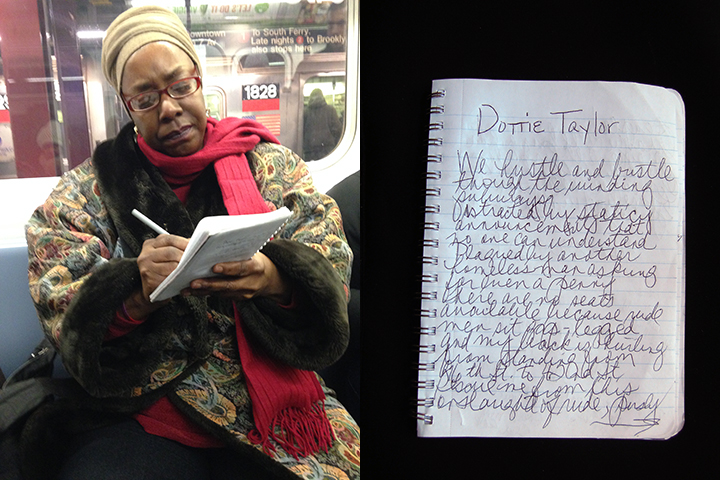 Downtown
To South Ferry.
Late nights 2 to Brookly
also stops here.
1828
Dottie Taylor
We hustle and bustle
though the winding
subways
Distracted by static-y
announcements that
no one can understand
Plagued by another
homeless man asking
for even a penny
there are no seats
available because rude
men sit gap-legged
and my back is killing
from standing from
th St. to 42nd St
Save me from this
onslaught of rude,